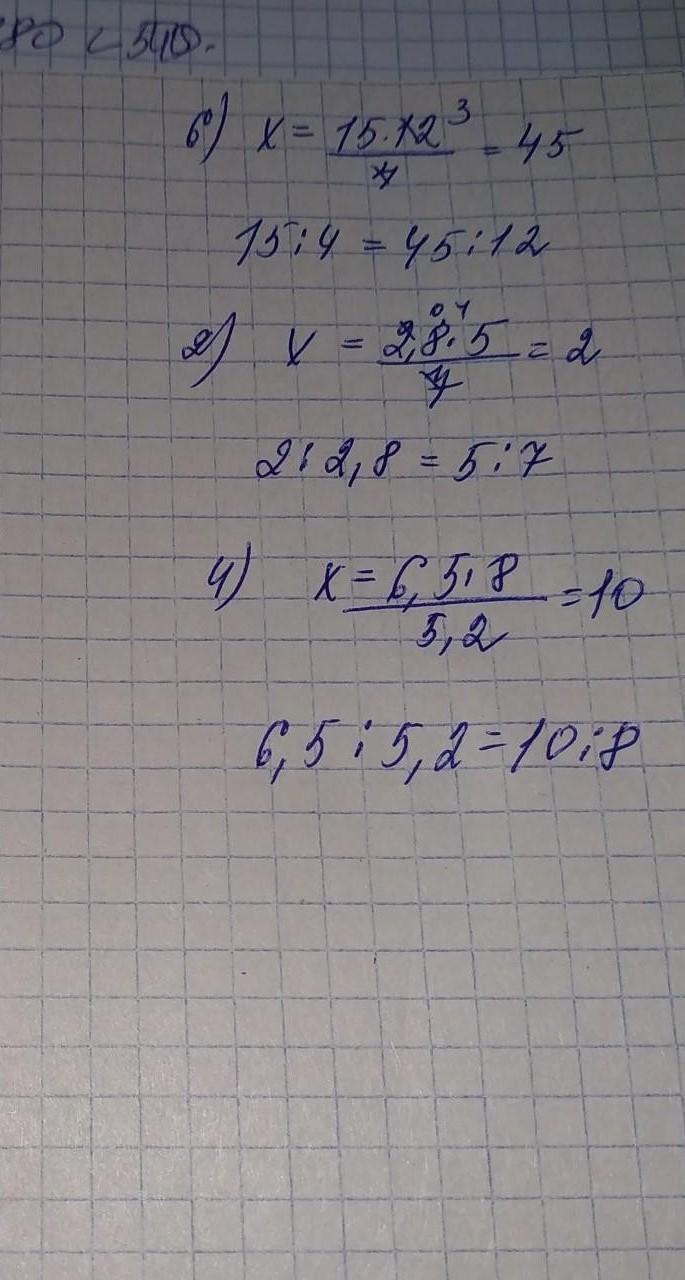 80 < 540.
б) x = 15·12 3 / 4 = 45
15 : 4 = 45 : 12
2) x = 2,8·5 0,4 / 7 = 2
2 : 2,8 = 5 : 7
4) x = 6,5·8 / 5,2 = 10
6,5 : 5,2 = 10 : 8